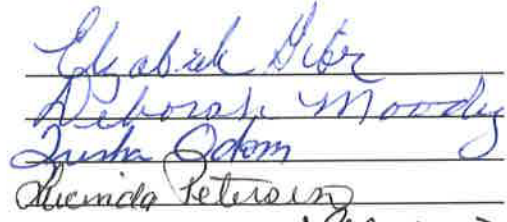 Elizabeth
Deborah Moody
Trisha Odom
Lucinda Peterson